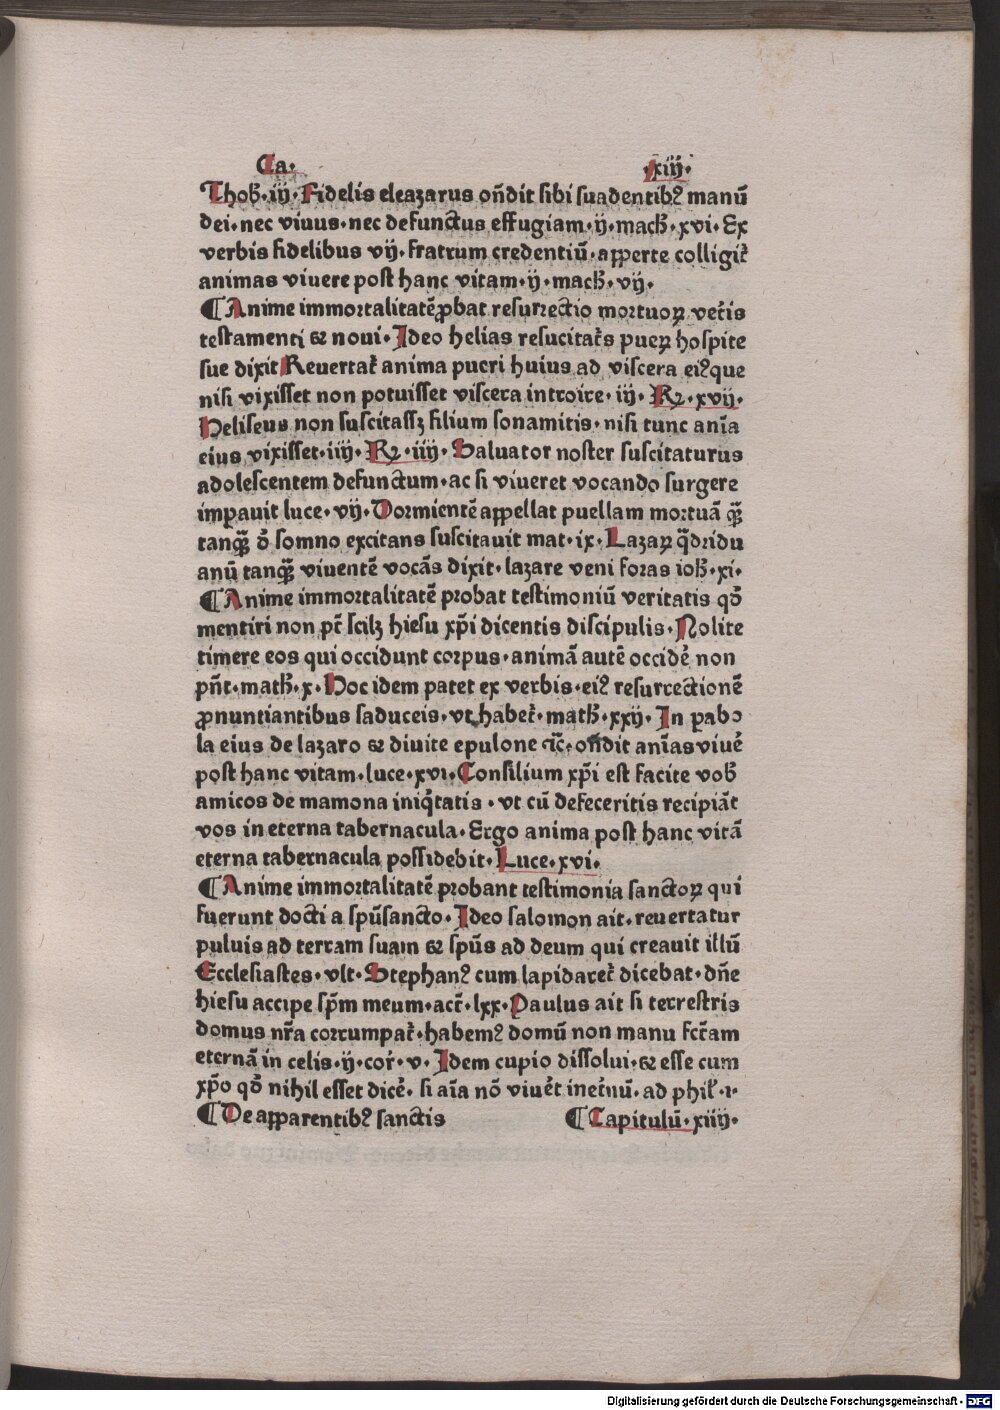 Ca. .xiij.
Thob̃.iij. Fidelis eleazarus on̄dit sibi suadentibꝰ manū
dei.nec viuus.nec defunctus effugiam.ij.mach̃.xvi. Ex
verbis fidelibus vij.fratrum credentiū.apperte colligit̃
animas viuere post hanc vitam.ij.mach̃.vij.
¶Anime immortalitatē ꝓbat resurrectio mortuoꝝ vet̃is
testamenti ⁊ noui. Ideo helias resucitat̃s pueꝝ hospite
sue dixit Reuertat̃ anima pueri huius ad viscera eiꝰ que
nisi vixisset non potuisset viscera introire.iij.Rꝝ.xvij.
Heliseus non suscitassꝫ filium sonamitis.nisi tunc ani̅a
eius vixisset.iiij.Rꝝ.iiij. Saluator noster suscitaturus
adolescentem defunctum.ac si viueret vocando surgere
imꝑauit luce.vij. Dormientē appellat puellam mortuā qꝫ̃
tanqꝫ̃ ō somno excitans suscitauit mat.ix. Lazaꝝ q̃dridu
anū tanqꝫ̃ viuentē vocās dixit.lazare veni foras ioh̃.xi.
¶Anime immortalitatē probat testimoniū veritatis qō
mentiri non pt̄ scilꝫ hiesu xp̄i dicentis discipulis. Nolite
timere eos qui occidunt corpus.animā autē occidẽ non
pn̄t.math̃.x. Hoc idem patet ex verbis.eiꝰ resurrectionē
ꝓnuntiantibus saduceis.vt habet̃.math̃.xxij. In ꝑabo
la eius de lazaro ⁊ diuite epulone ⁊c̄.on̄dit ani̅as viuẽ
post hanc vitam.luce.xvi. Consilium xp̄i est facite vob̃
amicos de mamona iniq̃tatis.vt cū defeceritis recipiāt
vos in eterna tabernacula. Ergo anima post hanc vitā
eterna tabernacula possidebit. Luce.xvi.
¶Anime immortalitatē probant testimonia sanctoꝝ qui
fuerunt docti a spūsancto. Ideo salomon ait.reuertatur
puluis ad terram suam ⁊ spūs ad deum qui creauit illū
Ecclesiastes.vlt. Stephanꝰ cum lapidaret̃ dicebat.dn̄e
hiesu accipe sp̄m meum.act̃.lxx. Paulus ait si terrestris
domus nr̄a corrumpat̃.habemꝰ domū non manu fct̄am
eternā in celis.ij.cor̃.v. Idem cupio dissolui.⁊ esse cum
xp̄o qō nihil esset dicẽ. si ai̅a nō viuẽt inet̃nū.ad phil̃.1.
¶De apparentibꝰ sanctis ¶Capitulū.xiiij.
Digitalisierung gefördert durch die Deutsche Forschungsgemeinschaft - DFG